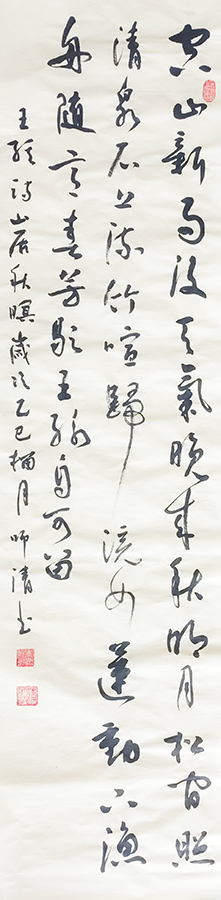 空山新雨後天氣晚來秋明月松間照
清泉石上流竹喧歸浣女蓮動下漁
舟隨意春芳歇王孫自可留
王維詩山居秋暝歲次乙巳榴月師清书